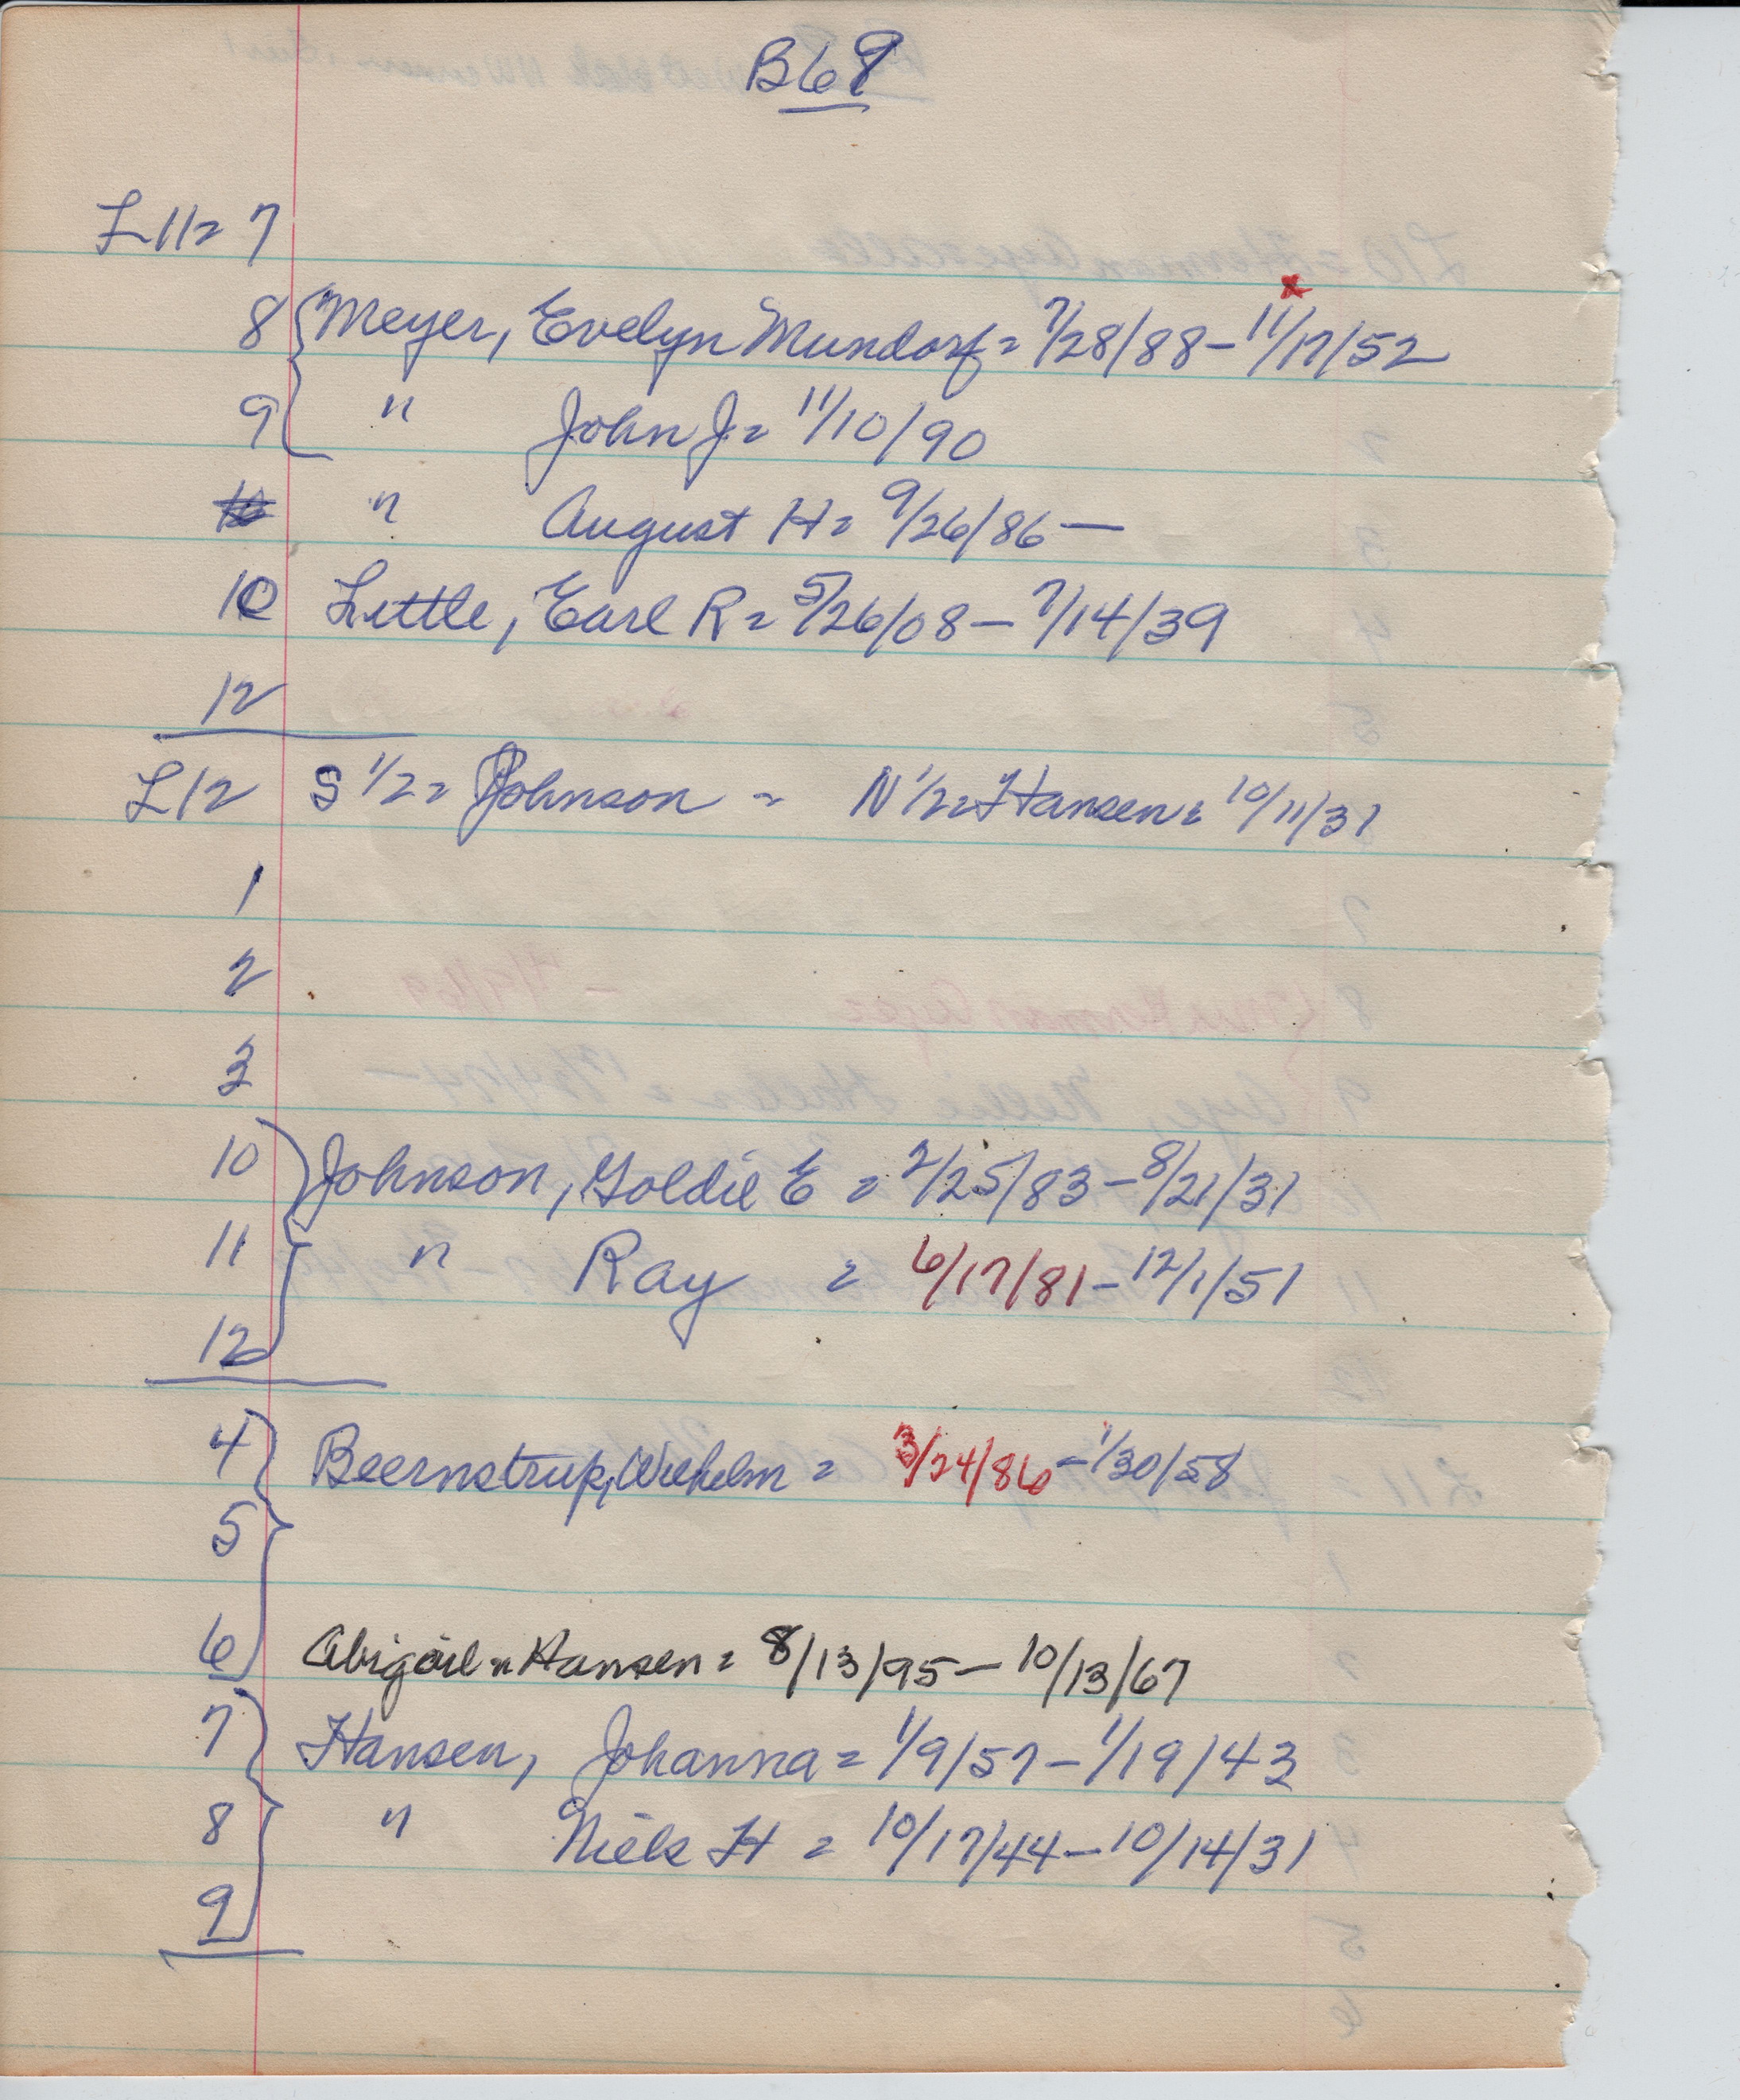 B69
L11= 7
8 { Meyer, Evelyn Mundorf = 7/28/88 - 11/17/52
x
9 " John J = 11/10/90
" August H = 9/26/86 —
10 Little, Earl R = 5/26/08 - 7/14/39
12
L12 S 1/2 = Johnson = N 1/2 = Hansen = 10/11/31
1
2
3
10 } Johnson, Goldie E = 2/25/83 - 8/21/31
11 " Ray = 6/17/81 - 12/1/51
12
4 } Beernstrup, Wilhelm = 3/24/86 - 1/30/58
5
6 Abigail " Hansen = 8/13/95 - 10/13/67
7 } Hansen, Johanna = 1/9/57 - 1/19/43
8 " Niels H = 10/17/44 - 10/14/31
9